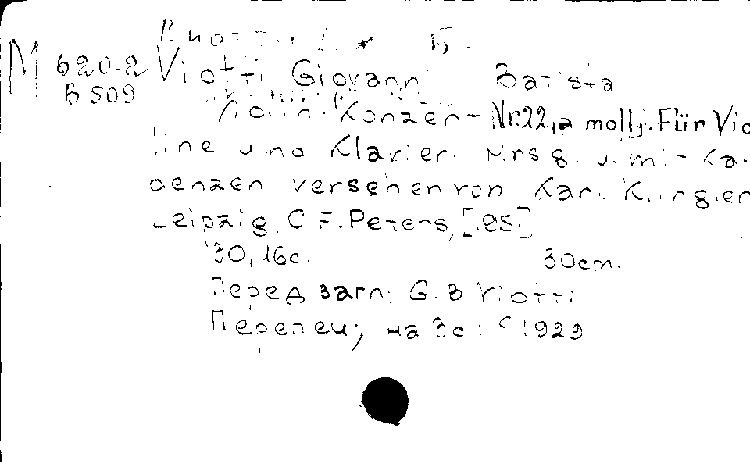 M 620-2 Viotti Giovanni Batista
B 509
Violin-Konzert Nr.22, a moll. Für Vio-
line und Klavier. Hrsg. u. mit Ka-
denzen versehen von Karl Klingler
Leipzig, C.F. Peters,
30, 16c. 30cm.
Перед загл: G. B Viotti
Перепеч; на 3 с: 1929